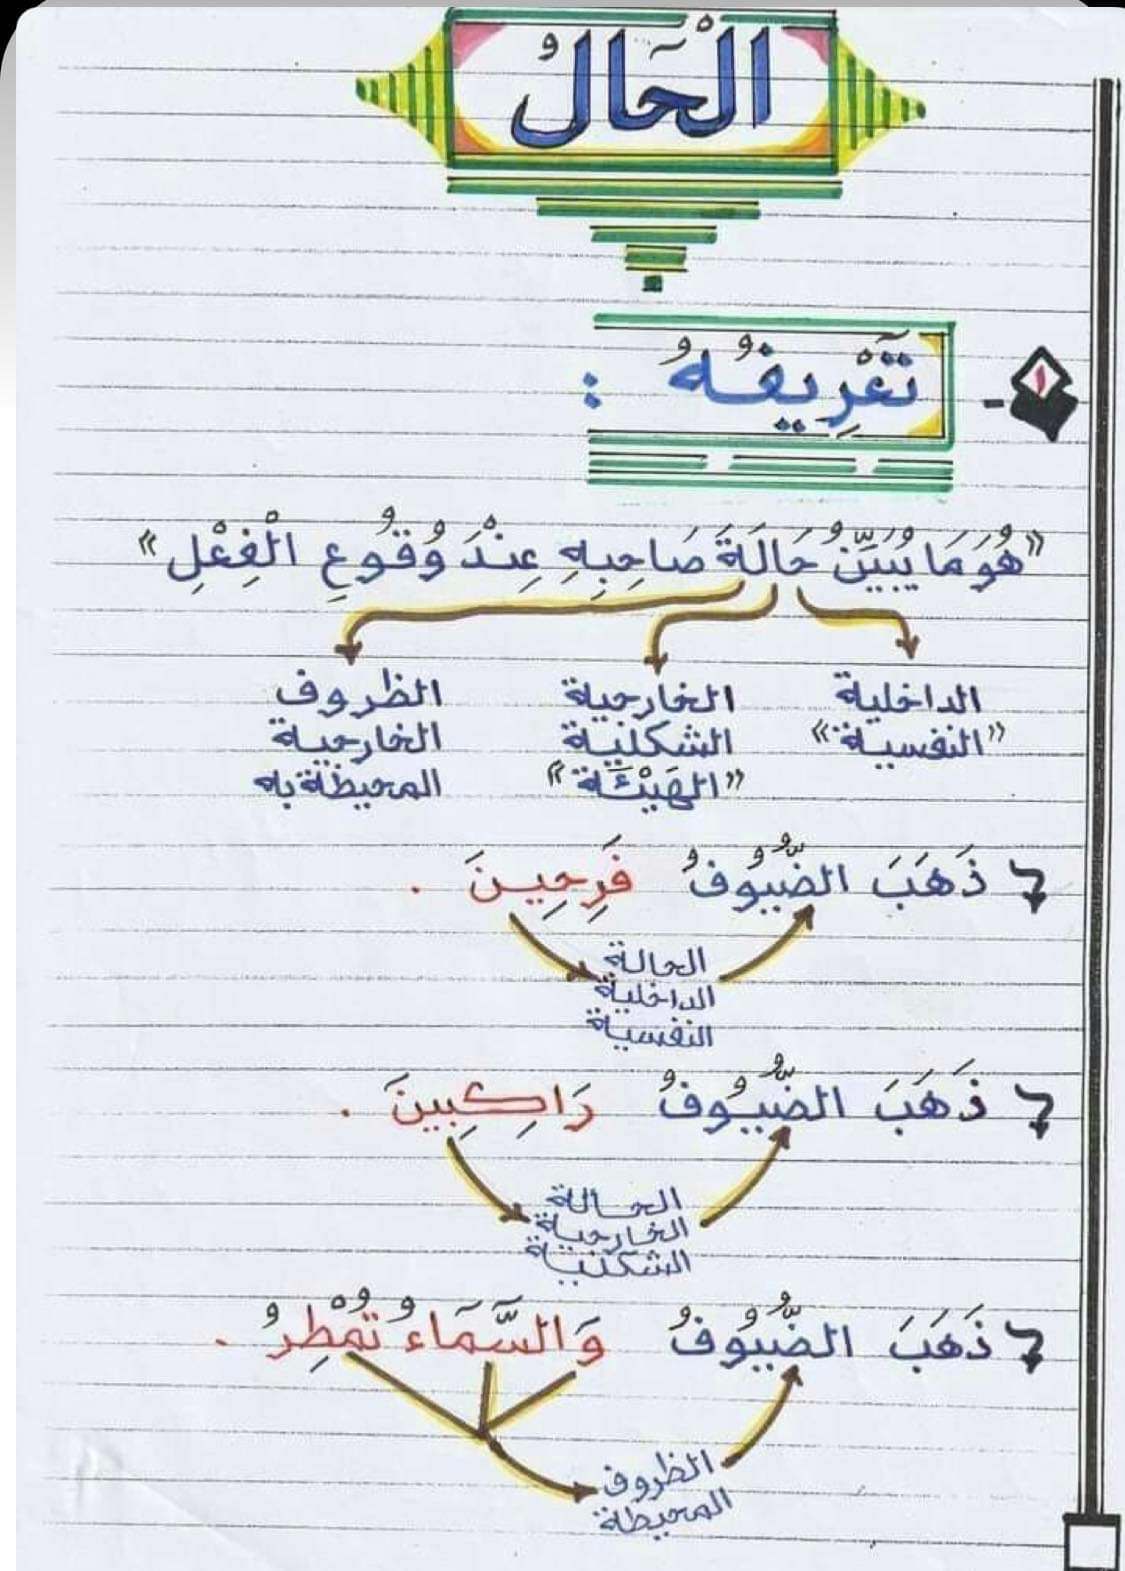 الْحَالُ
١ - تَعْرِيفُهُ :
«هُوَ مَا يُبَيِّنُ حَالَةَ صَاحِبِهِ عِنْدَ وُقُوعِ الْفِعْلِ»
الداخلية
«النفسية»
الخارجية
الشكلية
«الهَيْئَة»
الظروف
الخارجية
المحيطة به
ذَهَبَ الضُّيُوفُ فَرِحِينَ .
الحالة
الداخلية
النفسية
ذَهَبَ الضُّيُوفُ رَاكِبِينَ .
الحالة
الخارجية
الشكلية
ذَهَبَ الضُّيُوفُ وَالسَّمَاءُ تُمْطِرُ .
الظروف
المحيطة